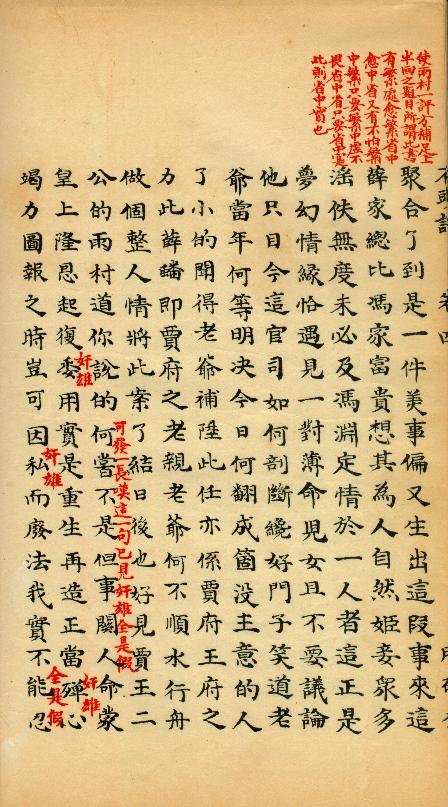 使雨村一評方補足上
半回之題目所謂此書
有繁處愈繁省中
愈中省又有不怕繁
中繁只要繁中虛不
畏省中省只要省中實
此則省中實也
聚合了到是一件美事偏又生出這段事來這
薛家總比馮家富貴想其為人自然姬妾衆多
滛佚無度未必及馮淵定情於一人者這正是
夢幻情緣恰遇見一對薄命兒女且不要議論
他只目今這官司如何剖斷纔好門子笑道老
爺當年何等明决今日何翻成箇没主意的人
了小的聞得老爺補陞此任亦係賈府王府之
力此薛蟠即賈府之老親老爺何不順水行舟
做個整人情將此案了結日後也好見賈王二
可發一長嘆這一句已見奸雄全是假
公的雨村道你說的何嘗不是但事關人命蒙
奸雄
奸雄
皇上隆恩起復委用實是重生再造正當殫心
奸雄
全是假
竭力圖報之時豈可因私而廢法我實不能忍